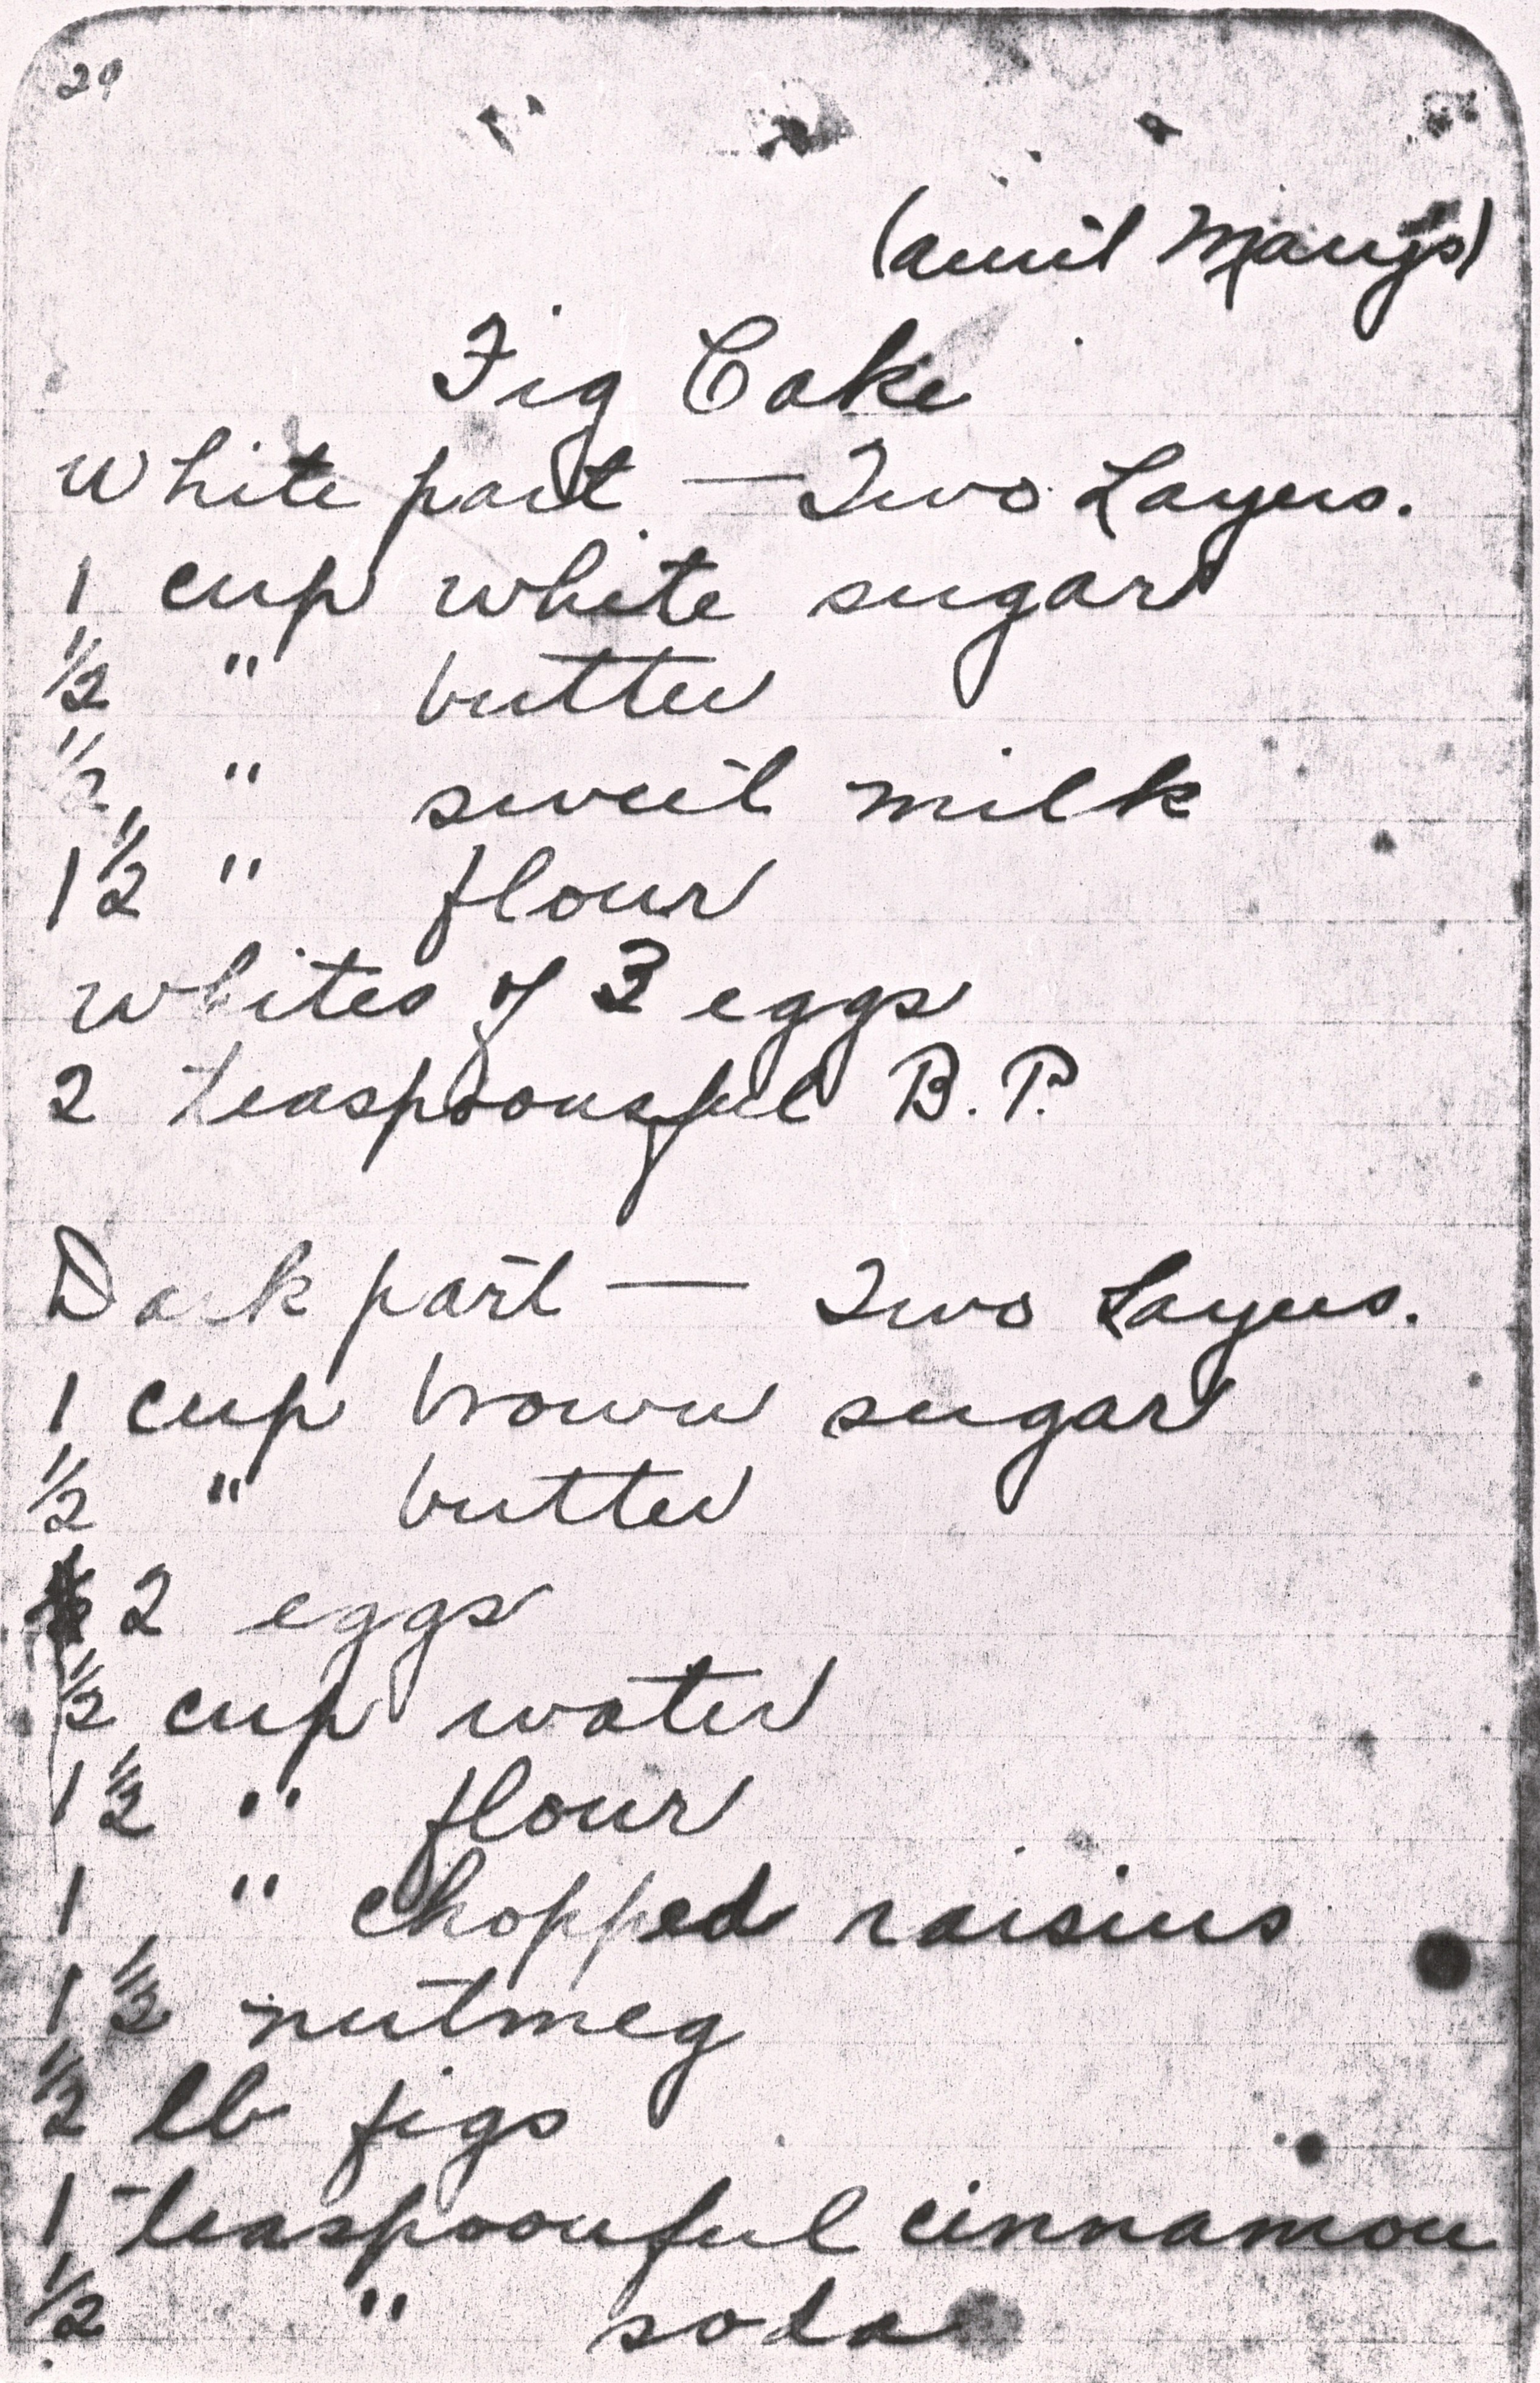 29
(aunt Mary's)
Fig Cake
White part — Two Layers.
1 cup white sugar
1/2 " butter
1/2 " sweet milk
1 1/2 " flour
whites of 3 eggs
2 teaspoonsful B.P.
Dark part — Two Layers.
1 cup brown sugar
1/2 " butter
2 eggs
1/2 cup water
1 1/2 " flour
1 " chopped raisins
1 1/2 nutmeg
1/2 lb figs
1 teaspoonful cinnamon
1/2 " soda